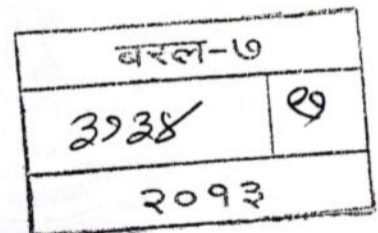 बरल-७
३१३४ १
२०१३